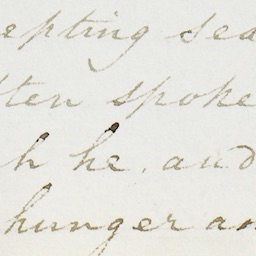 epting sea
ten spoke
h he, and
hunger an